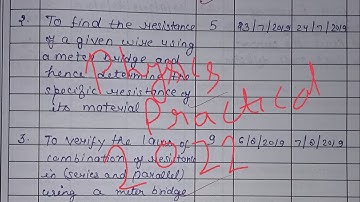 2. To find the resistance 5 23/7/2019 24/7/2019
of a given wire using
a meter bridge and
hence determine the
specific resistance of
its material
Physics
Practical
2022
3. To verify the laws of 9 6/8/2019 7/8/2019
combination of resistance
in (series and parallel)
using a meter bridge